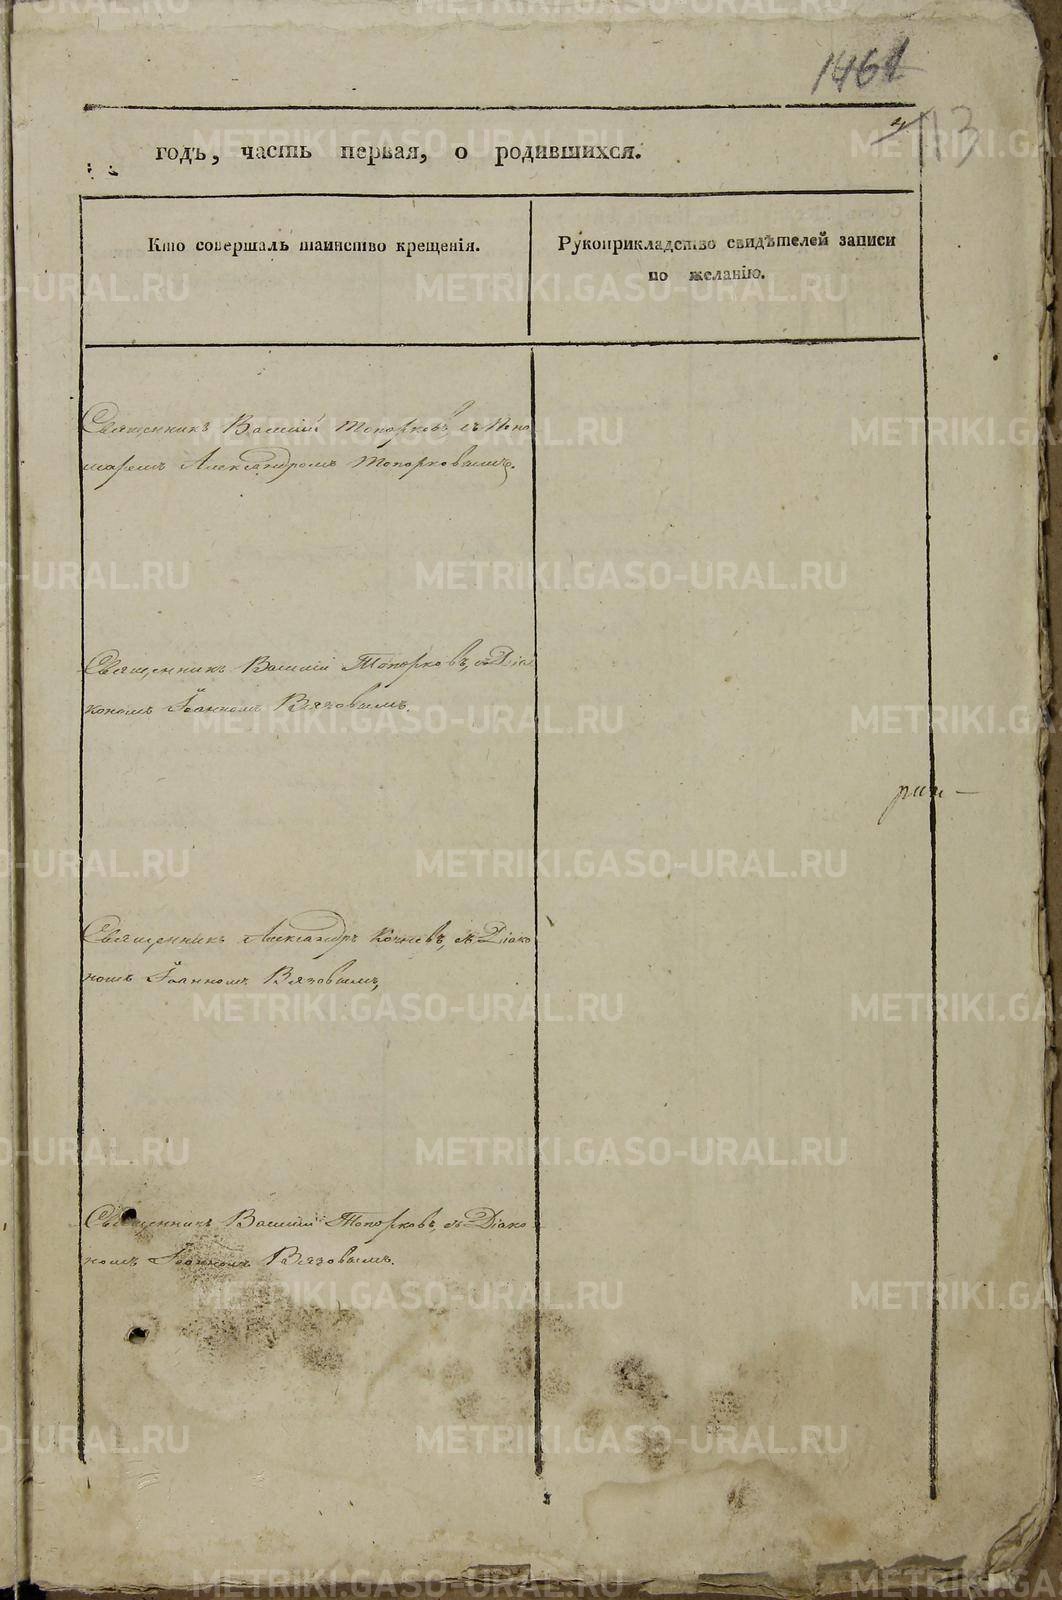 1461
13
годъ, часть первая, о родившихся.
Кто совершалъ таинство крещенія.
Рукоприкладство свидѣтелей записи
по желанію.
Священникъ Василій Топорковъ, съ Поно
маремъ Александромъ Топорковымъ.
Священникъ Василій Топорковъ, съ Діа
кономъ Іоанномъ Вязовымъ.
Священникъ Александръ Кочневъ, съ Діако
номъ Іоанномъ Вязовымъ,
Священникъ Василій Топорковъ, съ Діако
номъ Іоанномъ Вязовымъ.
METRIKI.GASO-URAL.RU